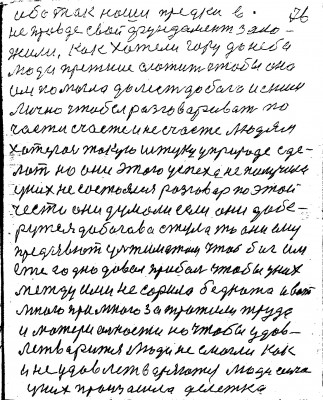 ибо так наши предки в. 76
не правде свой фундамент зало-
жили, как хотели гору до неба
люди прежние сложить чтобы она
им помогла до лест до бога и с ним
лично чтобы разговаривать по
части счастье и несчастье людям
хотели такую штуку у природе сде-
лат но они этого успеха не получили
у них не состоялся разговор по этой
чести они думали если они добе-
рутся до богова стула то они ему
предявют ултиматом чтоб бог им
благодно довал прибал чтобы у них
между ими не сорила беднота и вот
много при много затратили труда
и материалности но чтобы удов-
летварится люди не смогли как
и не удовлетварялись люди сича
у них произашла дележка